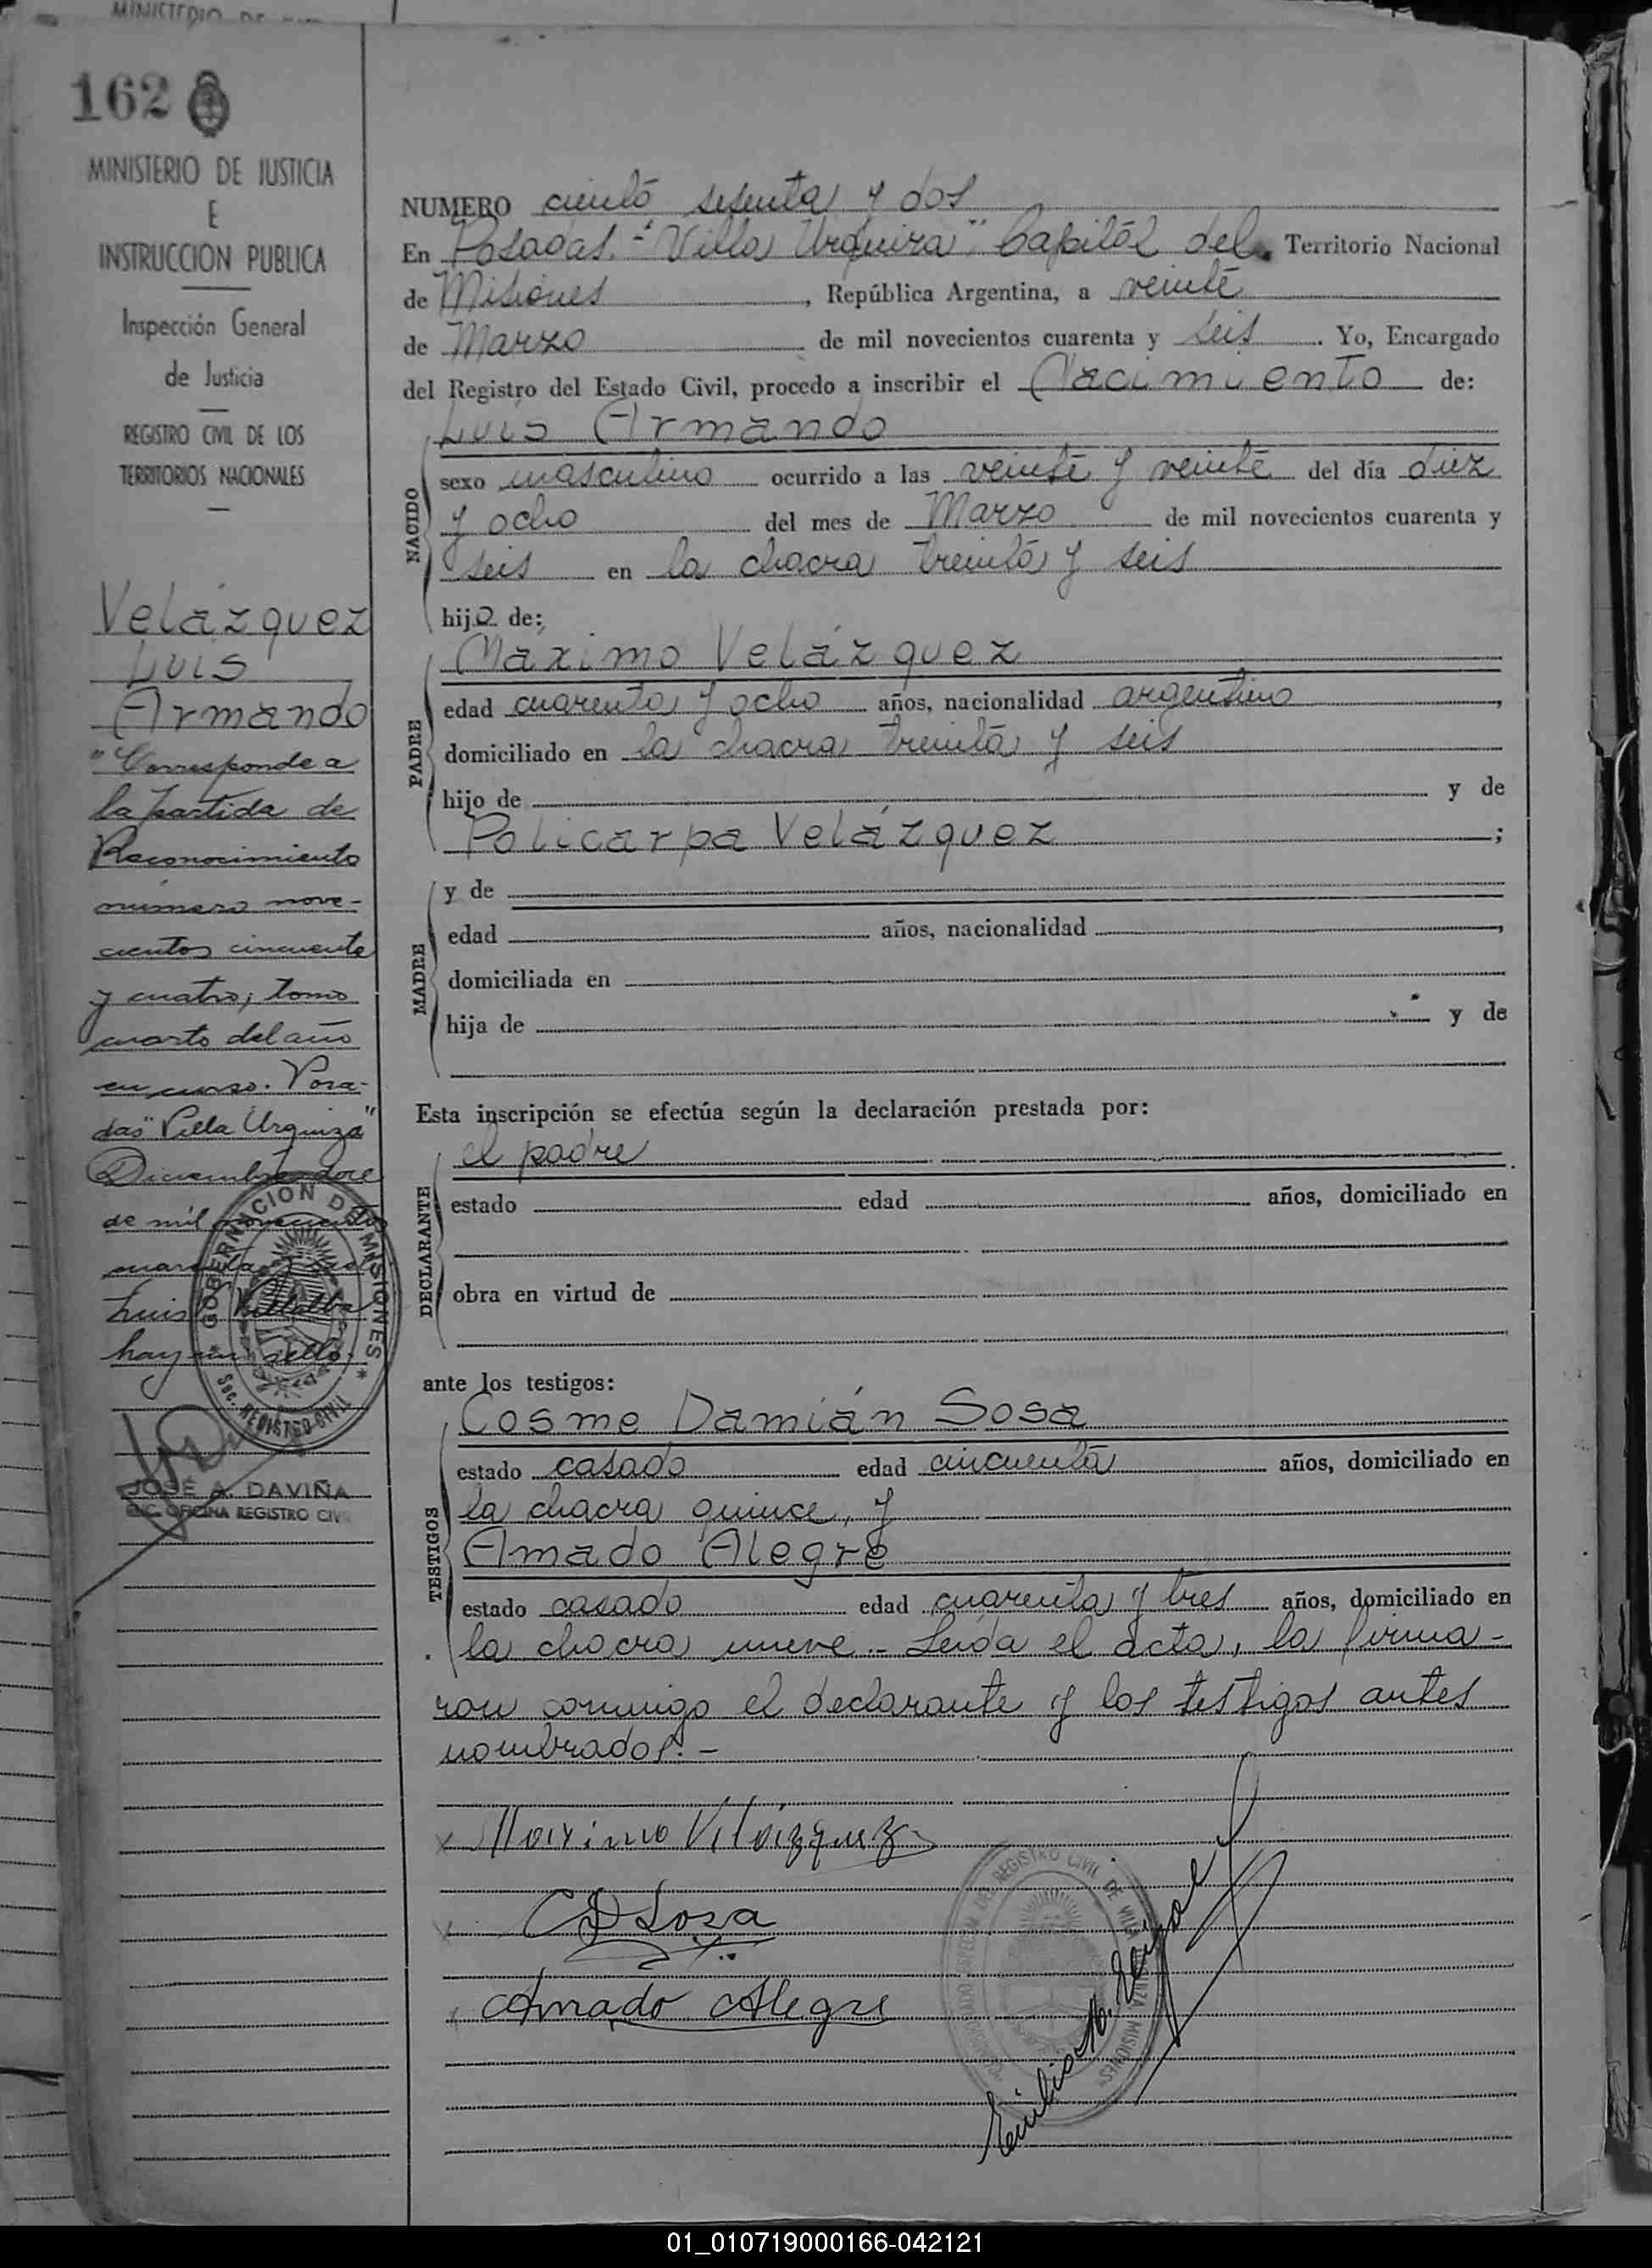 MINISTERIO DE
162
MINISTERIO DE JUSTICIA
E
INSTRUCCION PUBLICA
Inspección General
de Justicia
REGISTRO CIVIL DE LOS
TERRITORIOS NACIONALES
Velázquez
Luis
Armando
"Corresponde a
la partida de
Reconocimiento
número nove-
cientos cincuenta
y cuatro; tomo
cuarto del año
en curso. Posa-
das "Villa Urquiza"
Diciembre doce
de mil novecientos
cuarenta y seis
Luis Villalba
hay un sello.
GOBERNACION DE MISIONES
Sec. REGISTRO CIVIL
JOSÉ A. DAVIÑA
OFICINA REGISTRO CIVIL
NUMERO ciento sesenta y dos
En Posadas.-"Villa Urquiza", Capital del Territorio Nacional
de Misiones, República Argentina, a veinte
de Marzo de mil novecientos cuarenta y seis. Yo, Encargado
del Registro del Estado Civil, procedo a inscribir el Nacimiento de:
NACIDO
Luis Armando
sexo masculino ocurrido a las veinte y veinte del día diez
y ocho del mes de Marzo de mil novecientos cuarenta y
seis en la chacra treinta y seis
hijo de:
PADRE
Máximo Velázquez
edad cuarenta y ocho años, nacionalidad argentino,
domiciliado en la chacra treinta y seis
hijo de y de
Policarpa Velázquez;
MADRE
y de
edad años, nacionalidad,
domiciliada en
hija de y de
Esta inscripción se efectúa según la declaración prestada por:
DECLARANTE
el padre
estado edad años, domiciliado en
obra en virtud de
ante los testigos:
TESTIGOS
Cosme Damián Sosa
estado casado edad cincuenta años, domiciliado en
la chacra quince, y
Amado Alegre
estado casado edad cuarenta y tres años, domiciliado en
la chacra nueve.- Leída el acta, la firma-
ron conmigo el declarante y los testigos antes
nombrados.-
Maximo Velázquez
CD Sosa
Amado Alegre
REGISTRO CIVIL DE VILLA URQUIZA MISIONES
Emilio
01_010719000166-042121